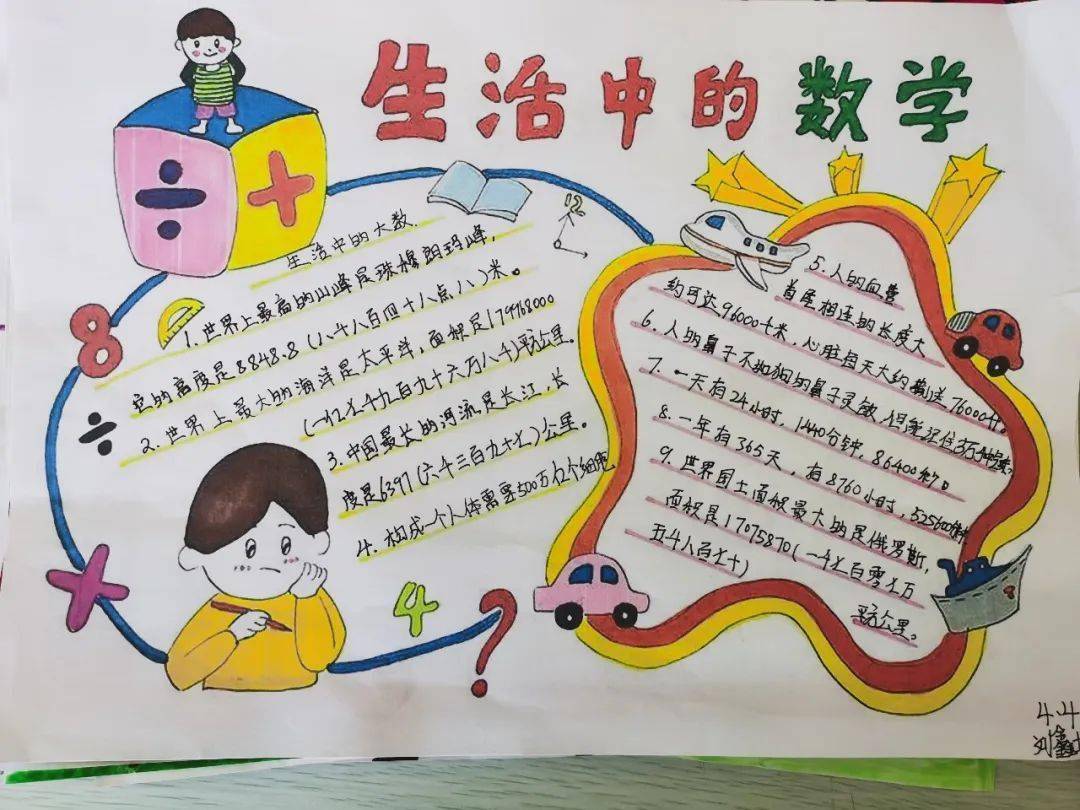 生活中的数学
÷ +
生活中的大数.
1.世界上最高的山峰是珠穆朗玛峰,
它的高度是8848.8(八千八百四十八点八)米。
2.世界上最大的海洋是太平洋,面积是179968000
(一九七千九百九十六万八千)平方公里。
3.中国最长的河流是长江,长
度是6397(六千三百九十七)公里。
4.构成一个人体需要500万亿个细胞
8
÷
×
4
?
12
5.人的血管
首尾相连的长度大
约可达96000千米,心脏每天大约输送76000升。
6.人的鼻子不如狗的鼻子灵敏,但能记住
7.一天有24小时,1440分钟,86400秒。
8.一年有365天,有8760小时,525600
9.世界国土面积最大的是俄罗斯,
面积是17075870(一千七百零七万
五千八百七十)
平方公里。
4.4
刘鑫